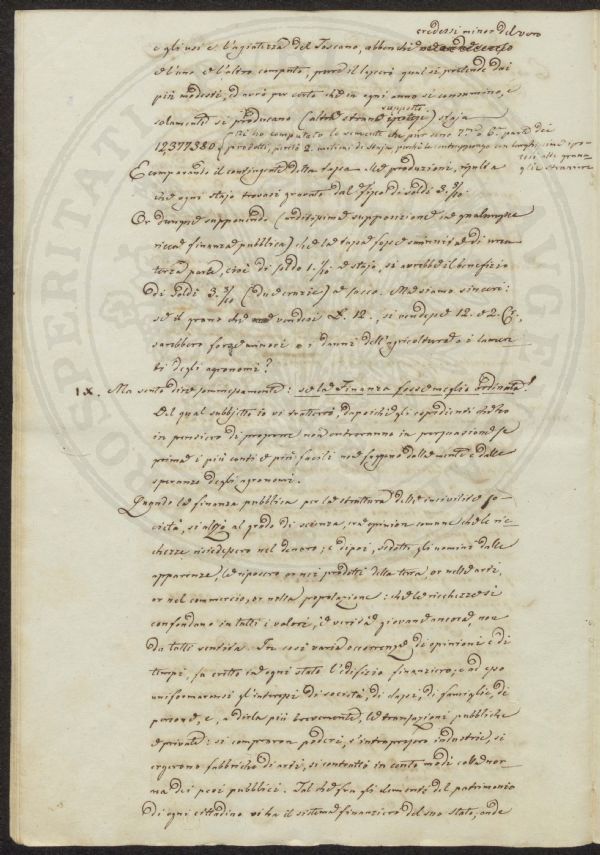 credersi minor del vero
e gli usi e l'agiatezza del Toscano, abbenchè
e l'uno e l'altro computo, perciò il lascerò qual si pretende dai
più modesti, ed avrò per certo che in ogni anno si consumino, e
supposti
solamente si producano (altre strane ipotesi) staja
12,377380. (Si ho computato le semente che pur sono 7.mo o 6.a parte dei
prodotti, perciò 2. milioni di staja, perchè le contrappongo con larghissime ipo-
tesi alle grana-
glie straniere
E comparando il contingente della tassa alle produzioni, risulta
che ogni stajo trovasi gravato dal Fisco di soldi 3. 3/10.
Or dunque supponendo (arditissima supposizione ad qualunque
ricca finanza pubblica) che la tassa fosse diminuita di una
terza parte, cioè di soldo 1. 1/10 a stajo, si avrebbe il benefizio
di soldi 3. 3/10 (due crazie) a sacco. Ma siamo sinceri:
se il grano che vendesi L. 12., si vendesse 12. e 2. C.,
sarebbero forse minori i danni dell'agricoltura o i lamen-
ti degli agronomi?
IX. Ma sento dire sommessamente: se la Finanza fosse meglio ordinata!
Del qual subbjetto io vi tratterrò, dapoichè gli espedienti che ho
in pensiero di proporre non entreranno in persuasione se
prima i più conti e più facili non fuggano dalla mente e dalle
speranze degli agronomi.
Quando la finanza pubblica per la struttura delle incivilite so-
cietà, si alzò al grado di scienza, era opinion comune che le ric-
chezze risiedessero nel denaro; e dipoi, sedotti gli uomini dalle
apparenze, le riposero or nei prodotti della terra, or nelle arti,
or nel commercio, or nella popolazione: che le ricchezze si
confondano in tutti i valori, è verità giovane ancora, non
da tutti sentita. In così varia occorrenza di opinioni e di
tempi, fu eretto in ogni stato l'edifizio finanziero; e ad esso
uniformaronsi gl'interessi di società, di classi, di famiglie, di
persone, e, a dirla più brevemente, le transazioni pubbliche
e private: si comprarono poderi, s'intrapresero industrie, si
ergerono fabbriche di arti, si contrattò in cento modi colla nor-
ma dei pesi pubblici. Tal che fra gli elementi del patrimonio
di ogni cittadino vi ha il sistema finanziero del suo stato, onde